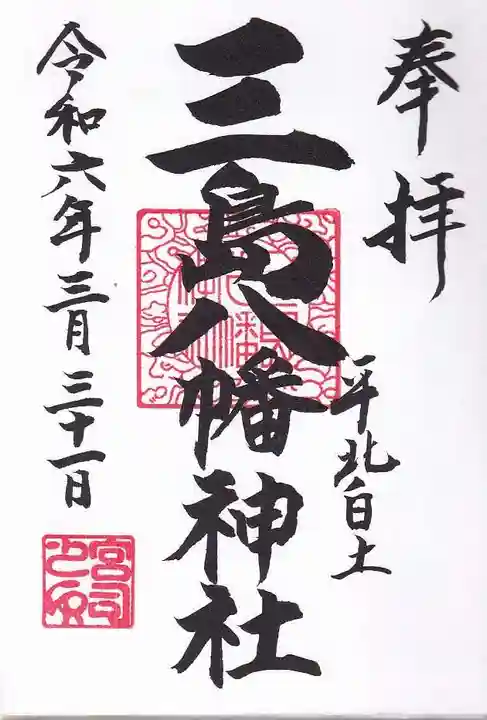 奉拝
平北白土
三島八幡神社
令和六年三月三十一日
宮司之印